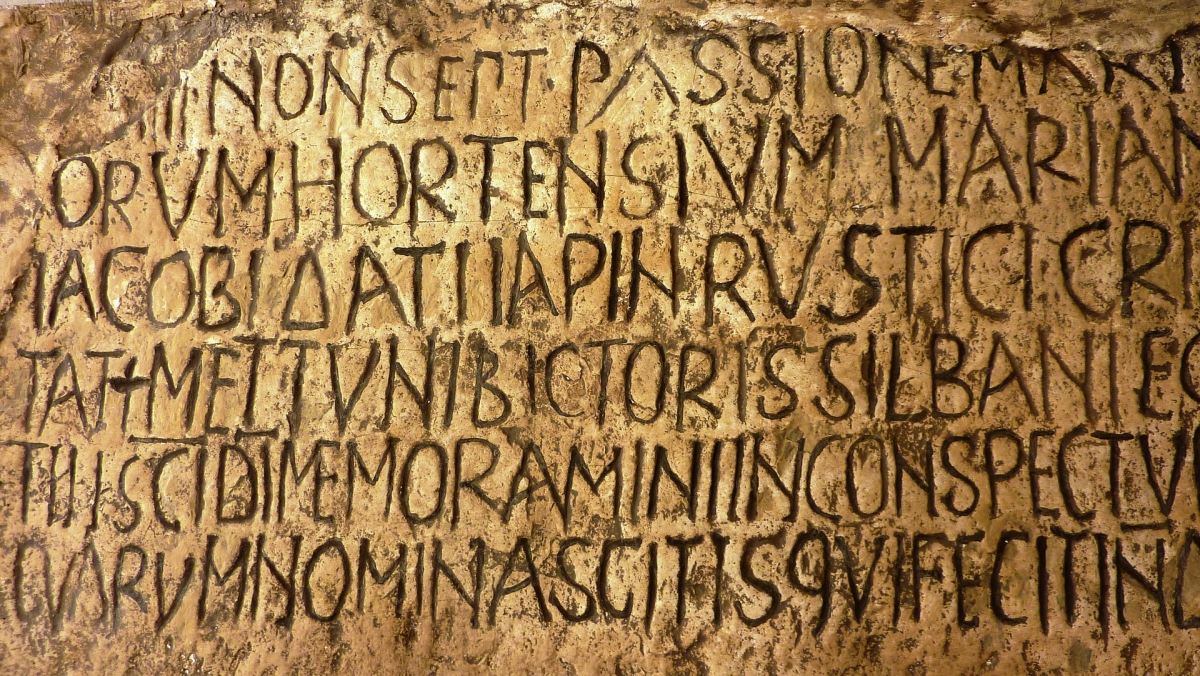 IIII NON SEPT · PASSIONE MARTI
ORVM HORTENSIVM MARIAN
IACOBI DATI IAPIN RVSTICI CRI
TATI METTVNI BICTORIS SILBANI EG
TII SCI DI MEMORAMINI IN CONSPECTV
QVARVM NOMINA SCITIS QVI FECIT IN